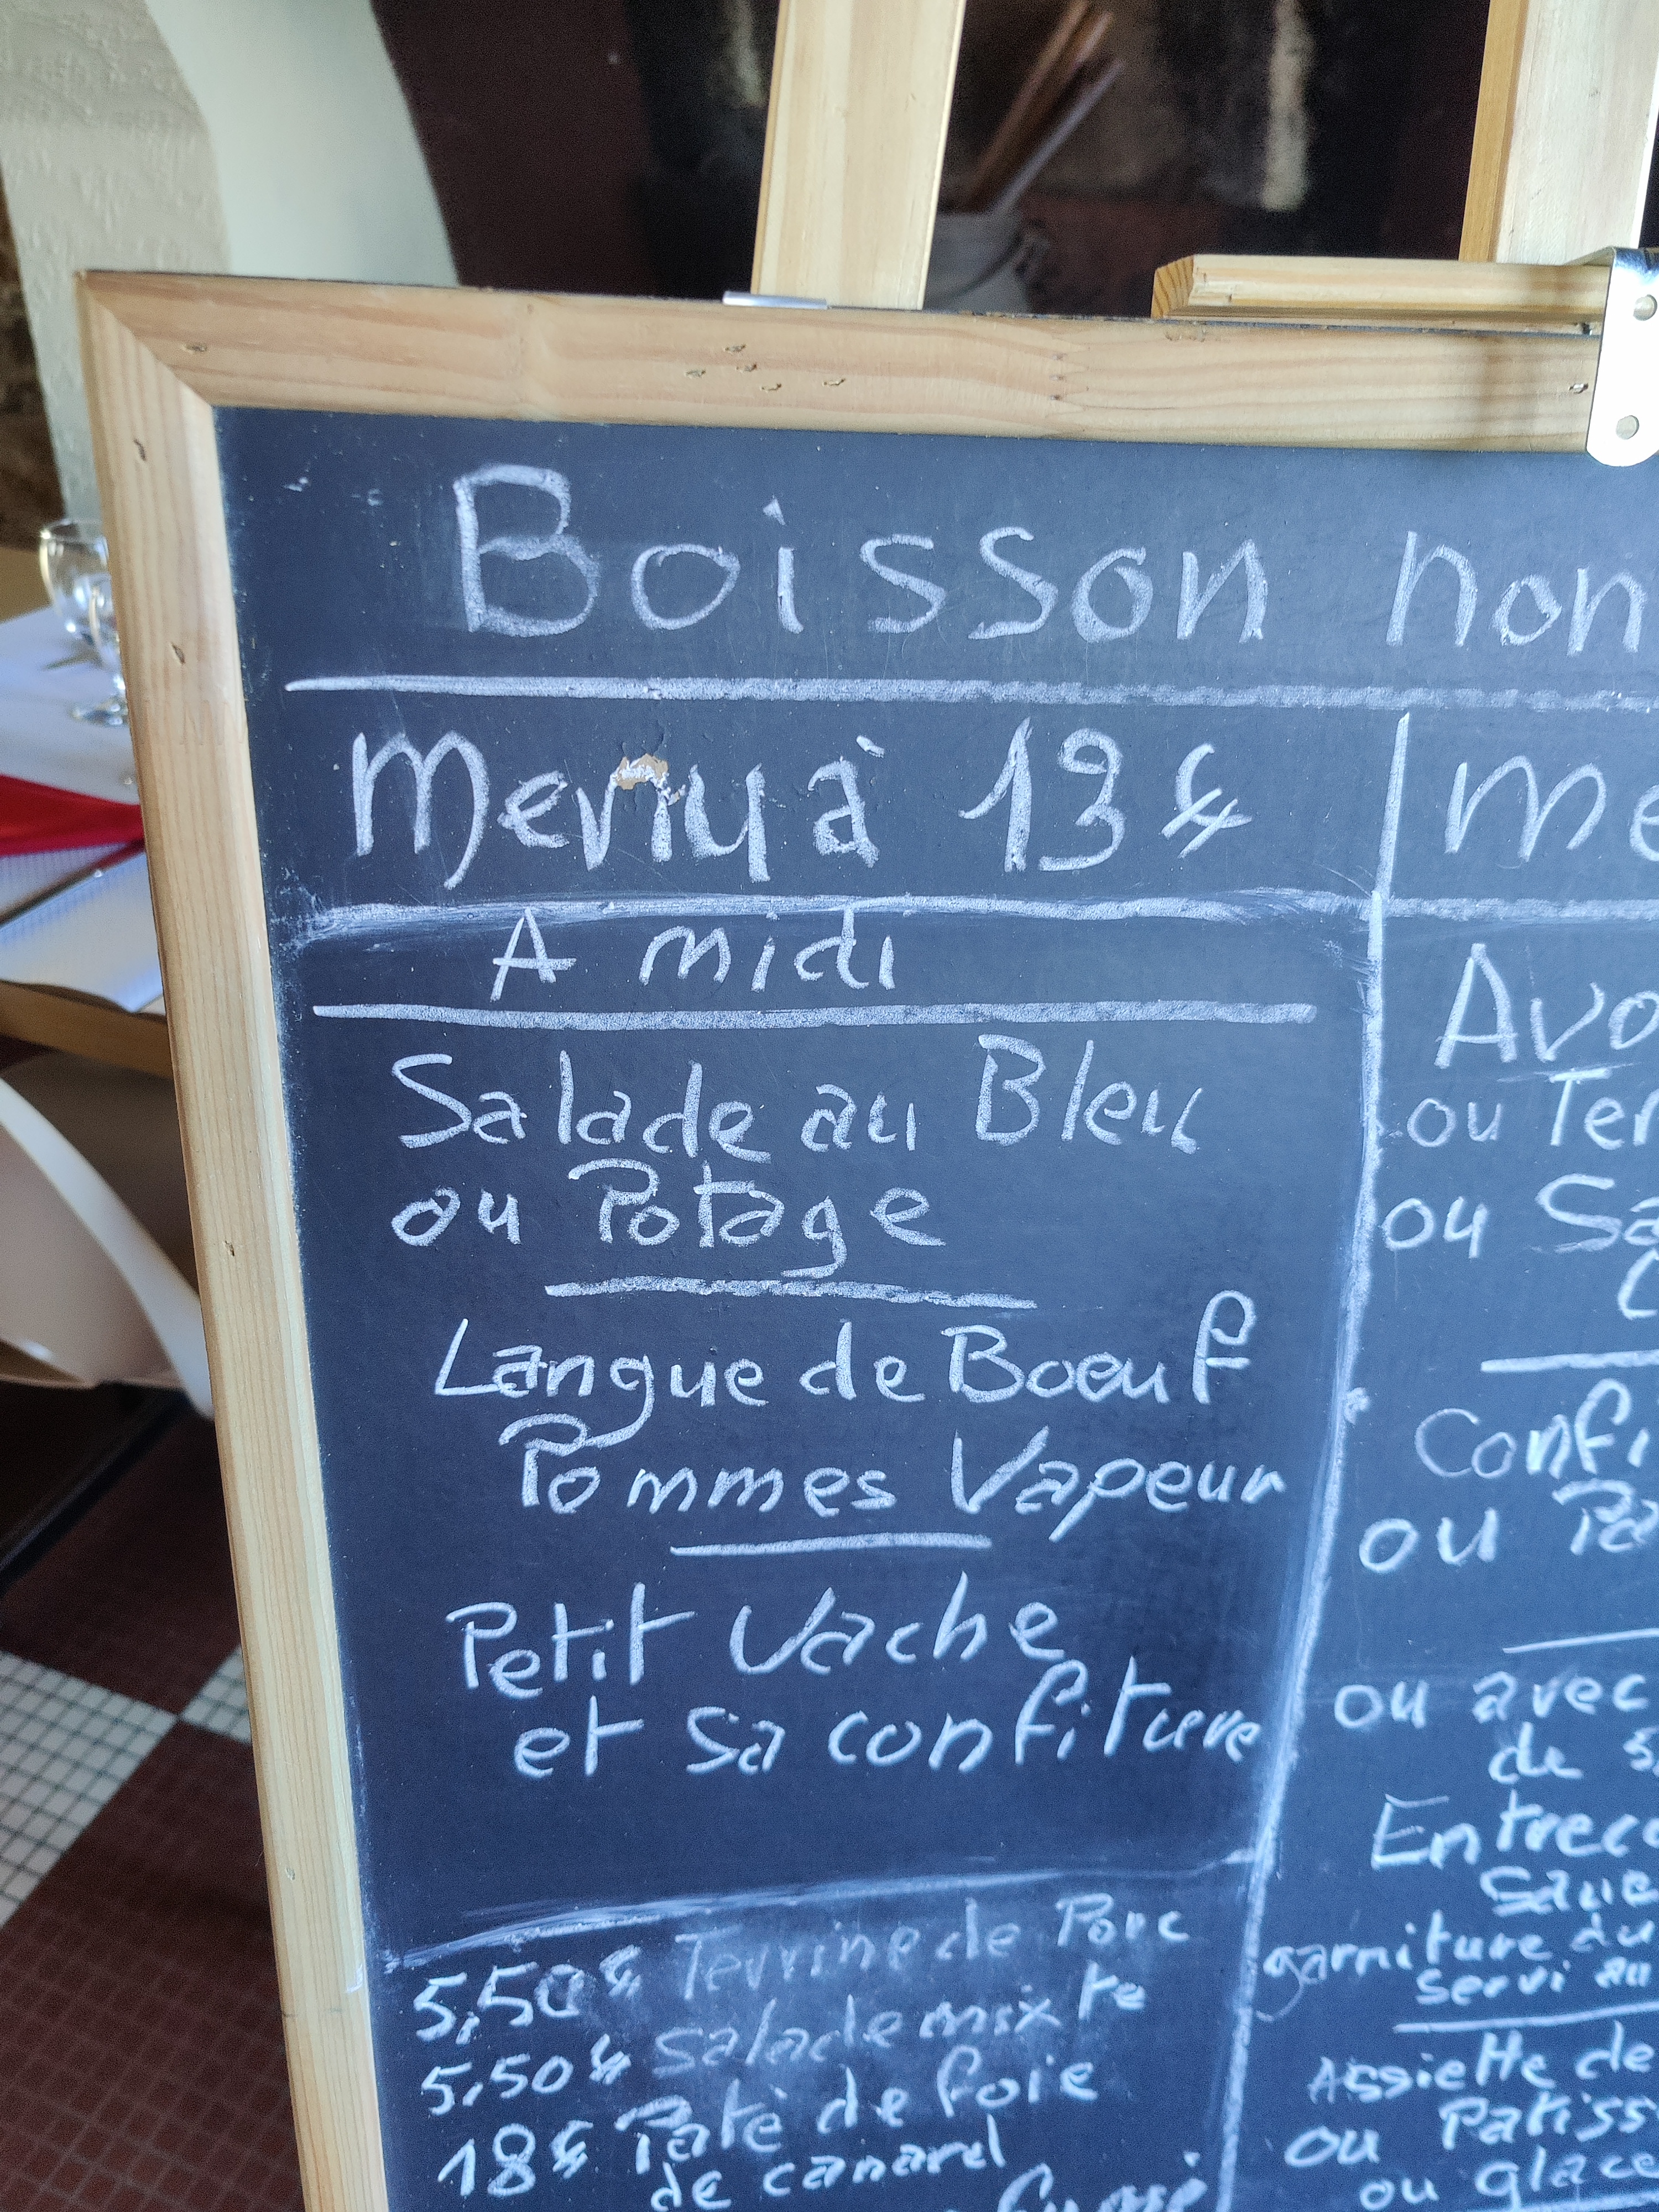 Boisson non
Menu à 13 €
A midi
Salade au Bleu
ou Potage
Langue de Boeuf
Pommes Vapeur
Petit Vache
et sa confiture
5,50€ Terrine de Porc
5,50€ Salade mixte
18€ Paté de foie
de canard
fumé
Me
Avo
ou Ter
ou Sa
C
Confi
ou Pa
ou avec
de
Entreco
Sauc
garniture du
servi au
Assiette de
ou Patiss
ou glace